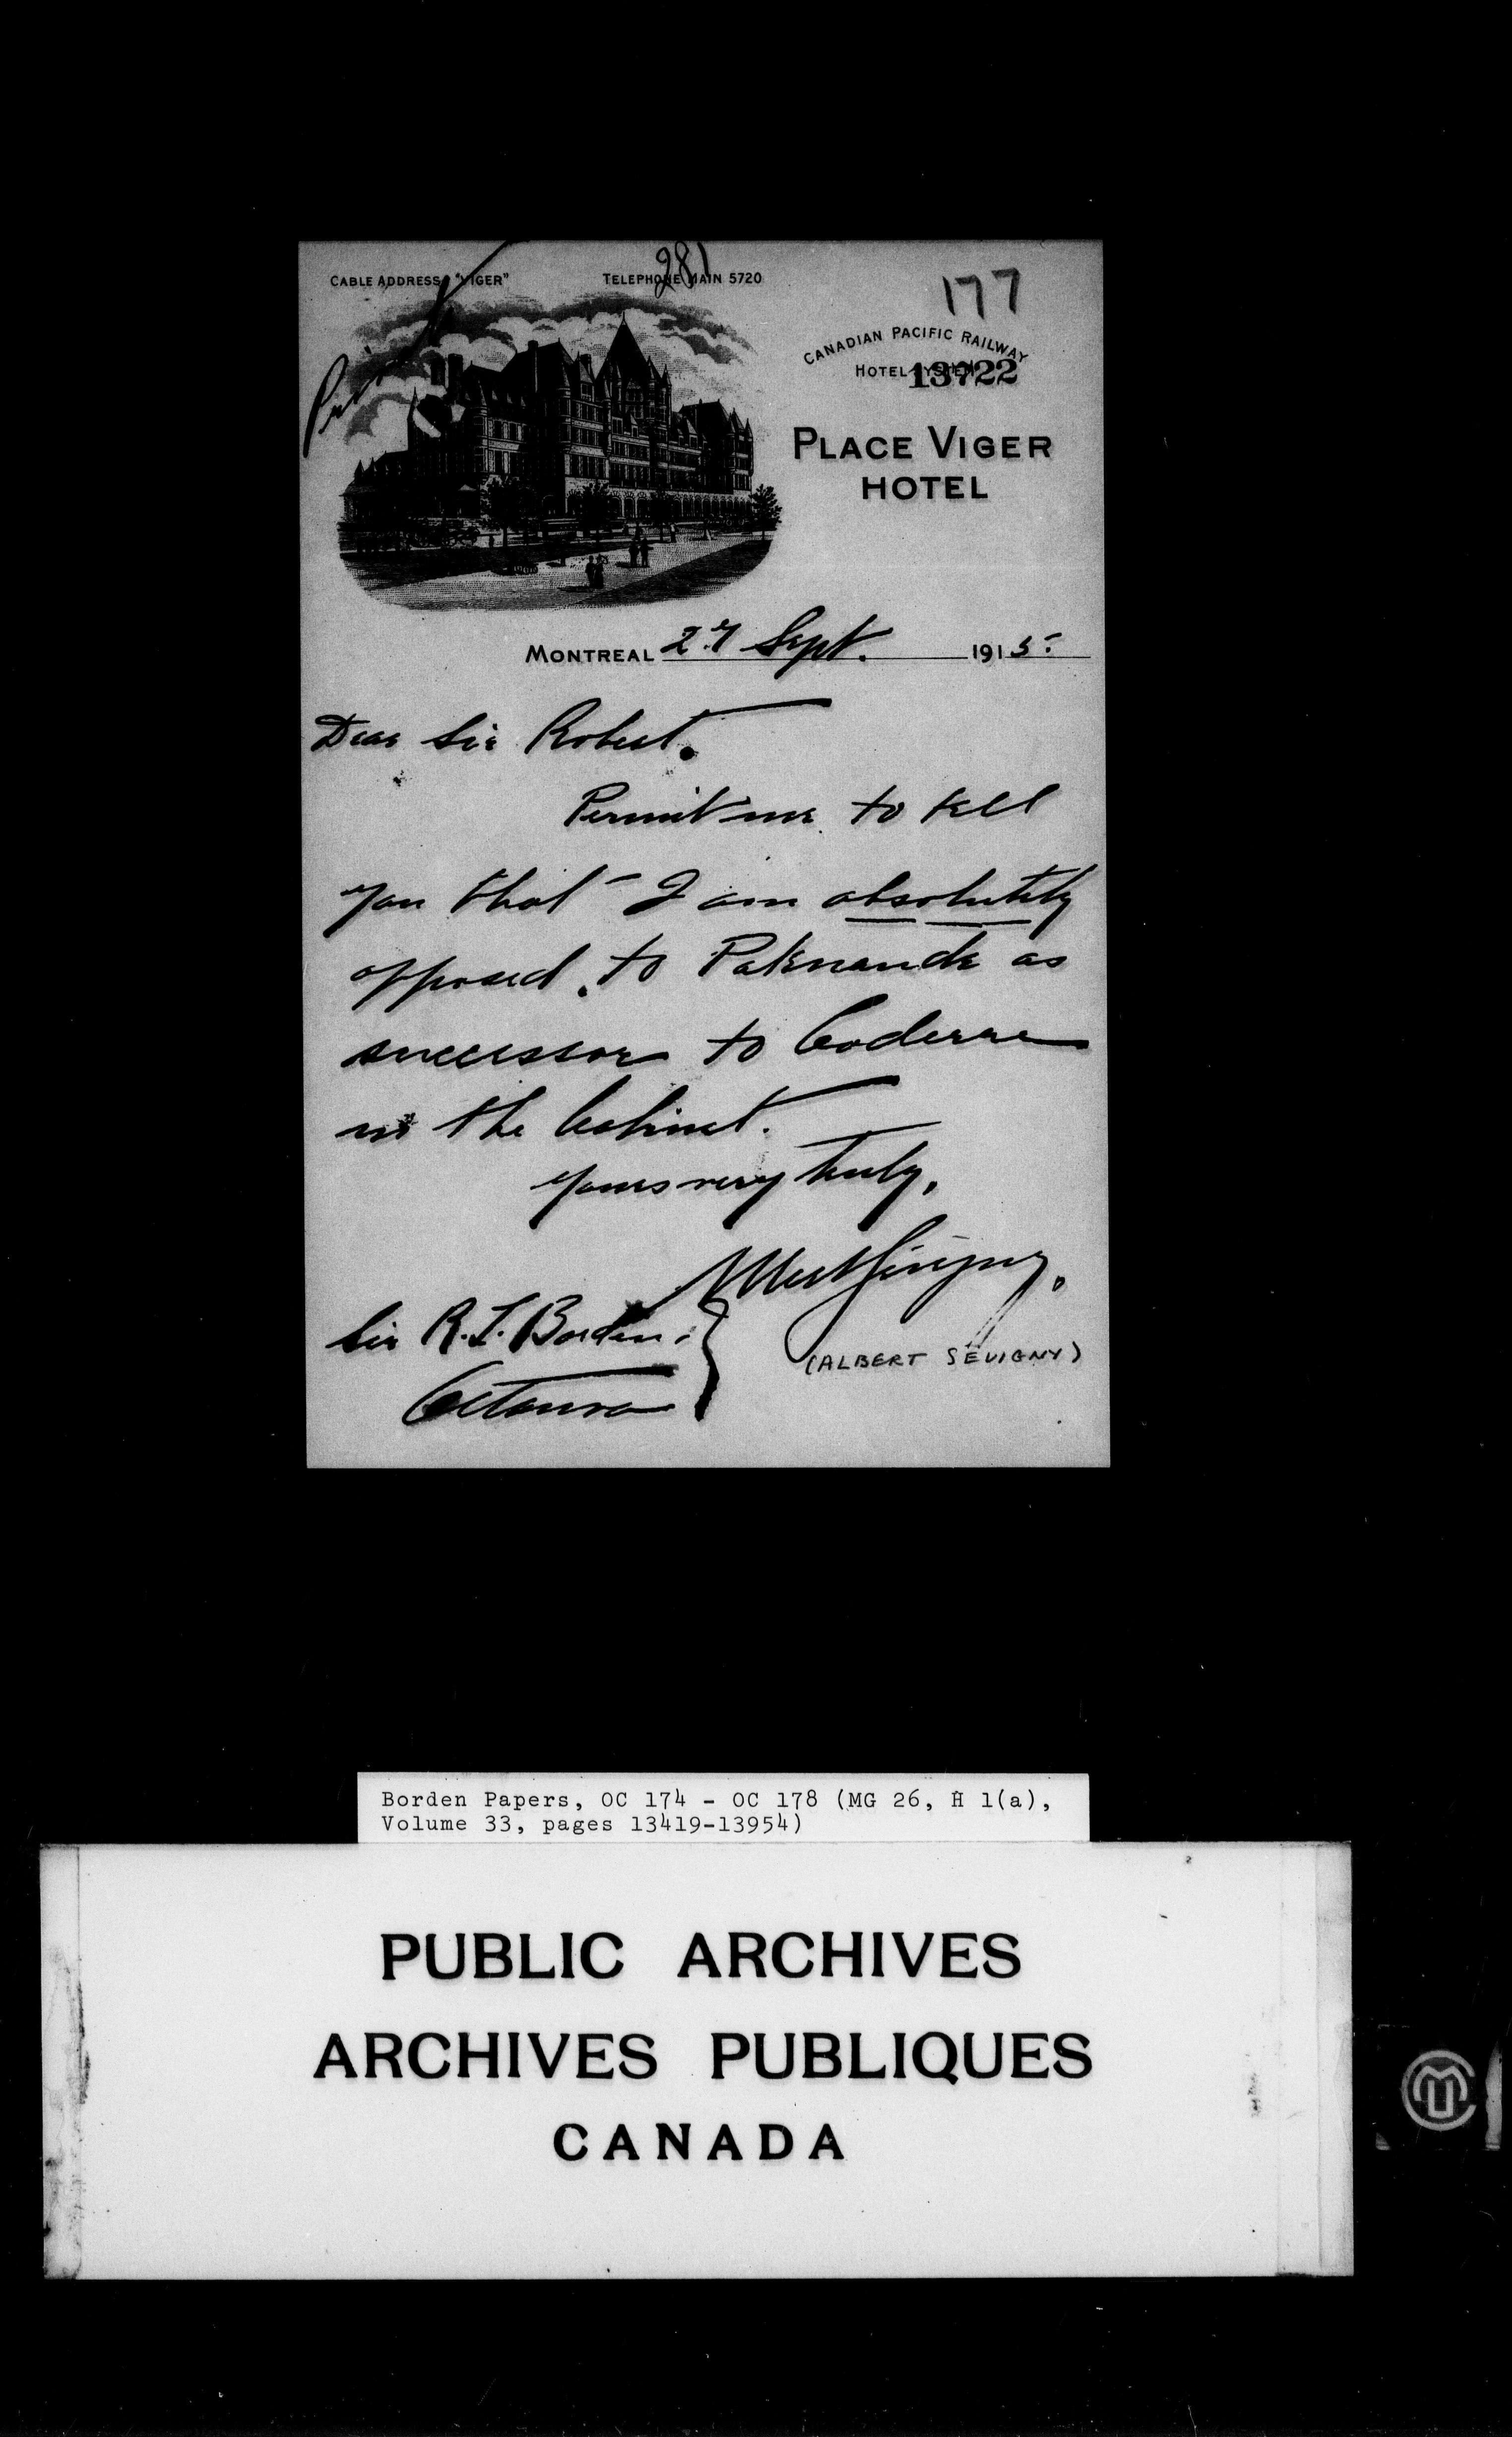 281
177
Private
CABLE ADDRESS "VIGER"
TELEPHONE MAIN 5720
CANADIAN PACIFIC RAILWAY
HOTEL SYSTEM
13722
PLACE VIGER
HOTEL
MONTREAL 27 Sept. 1915.
Dear Sir Robert.
Permit me to tell
you that I am absolutely
opposed to Patenaude as
successor to Coderre
in the Cabinet.
Yours very truly,
Albert Sévigny.
(ALBERT SÉVIGNY)
Sir R. L. Borden.
Ottawa
Borden Papers, OC 174 - OC 178 (MG 26, H 1(a),
Volume 33, pages 13419-13954)
PUBLIC ARCHIVES
ARCHIVES PUBLIQUES
CANADA